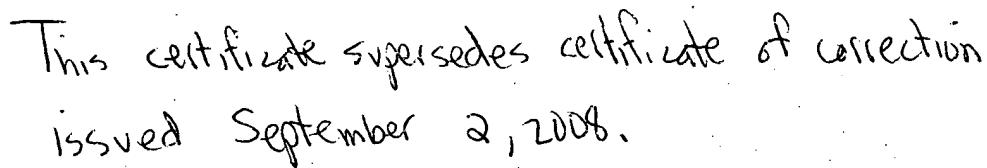 This certificate supersedes certificate of correction
issued September 2, 2008.